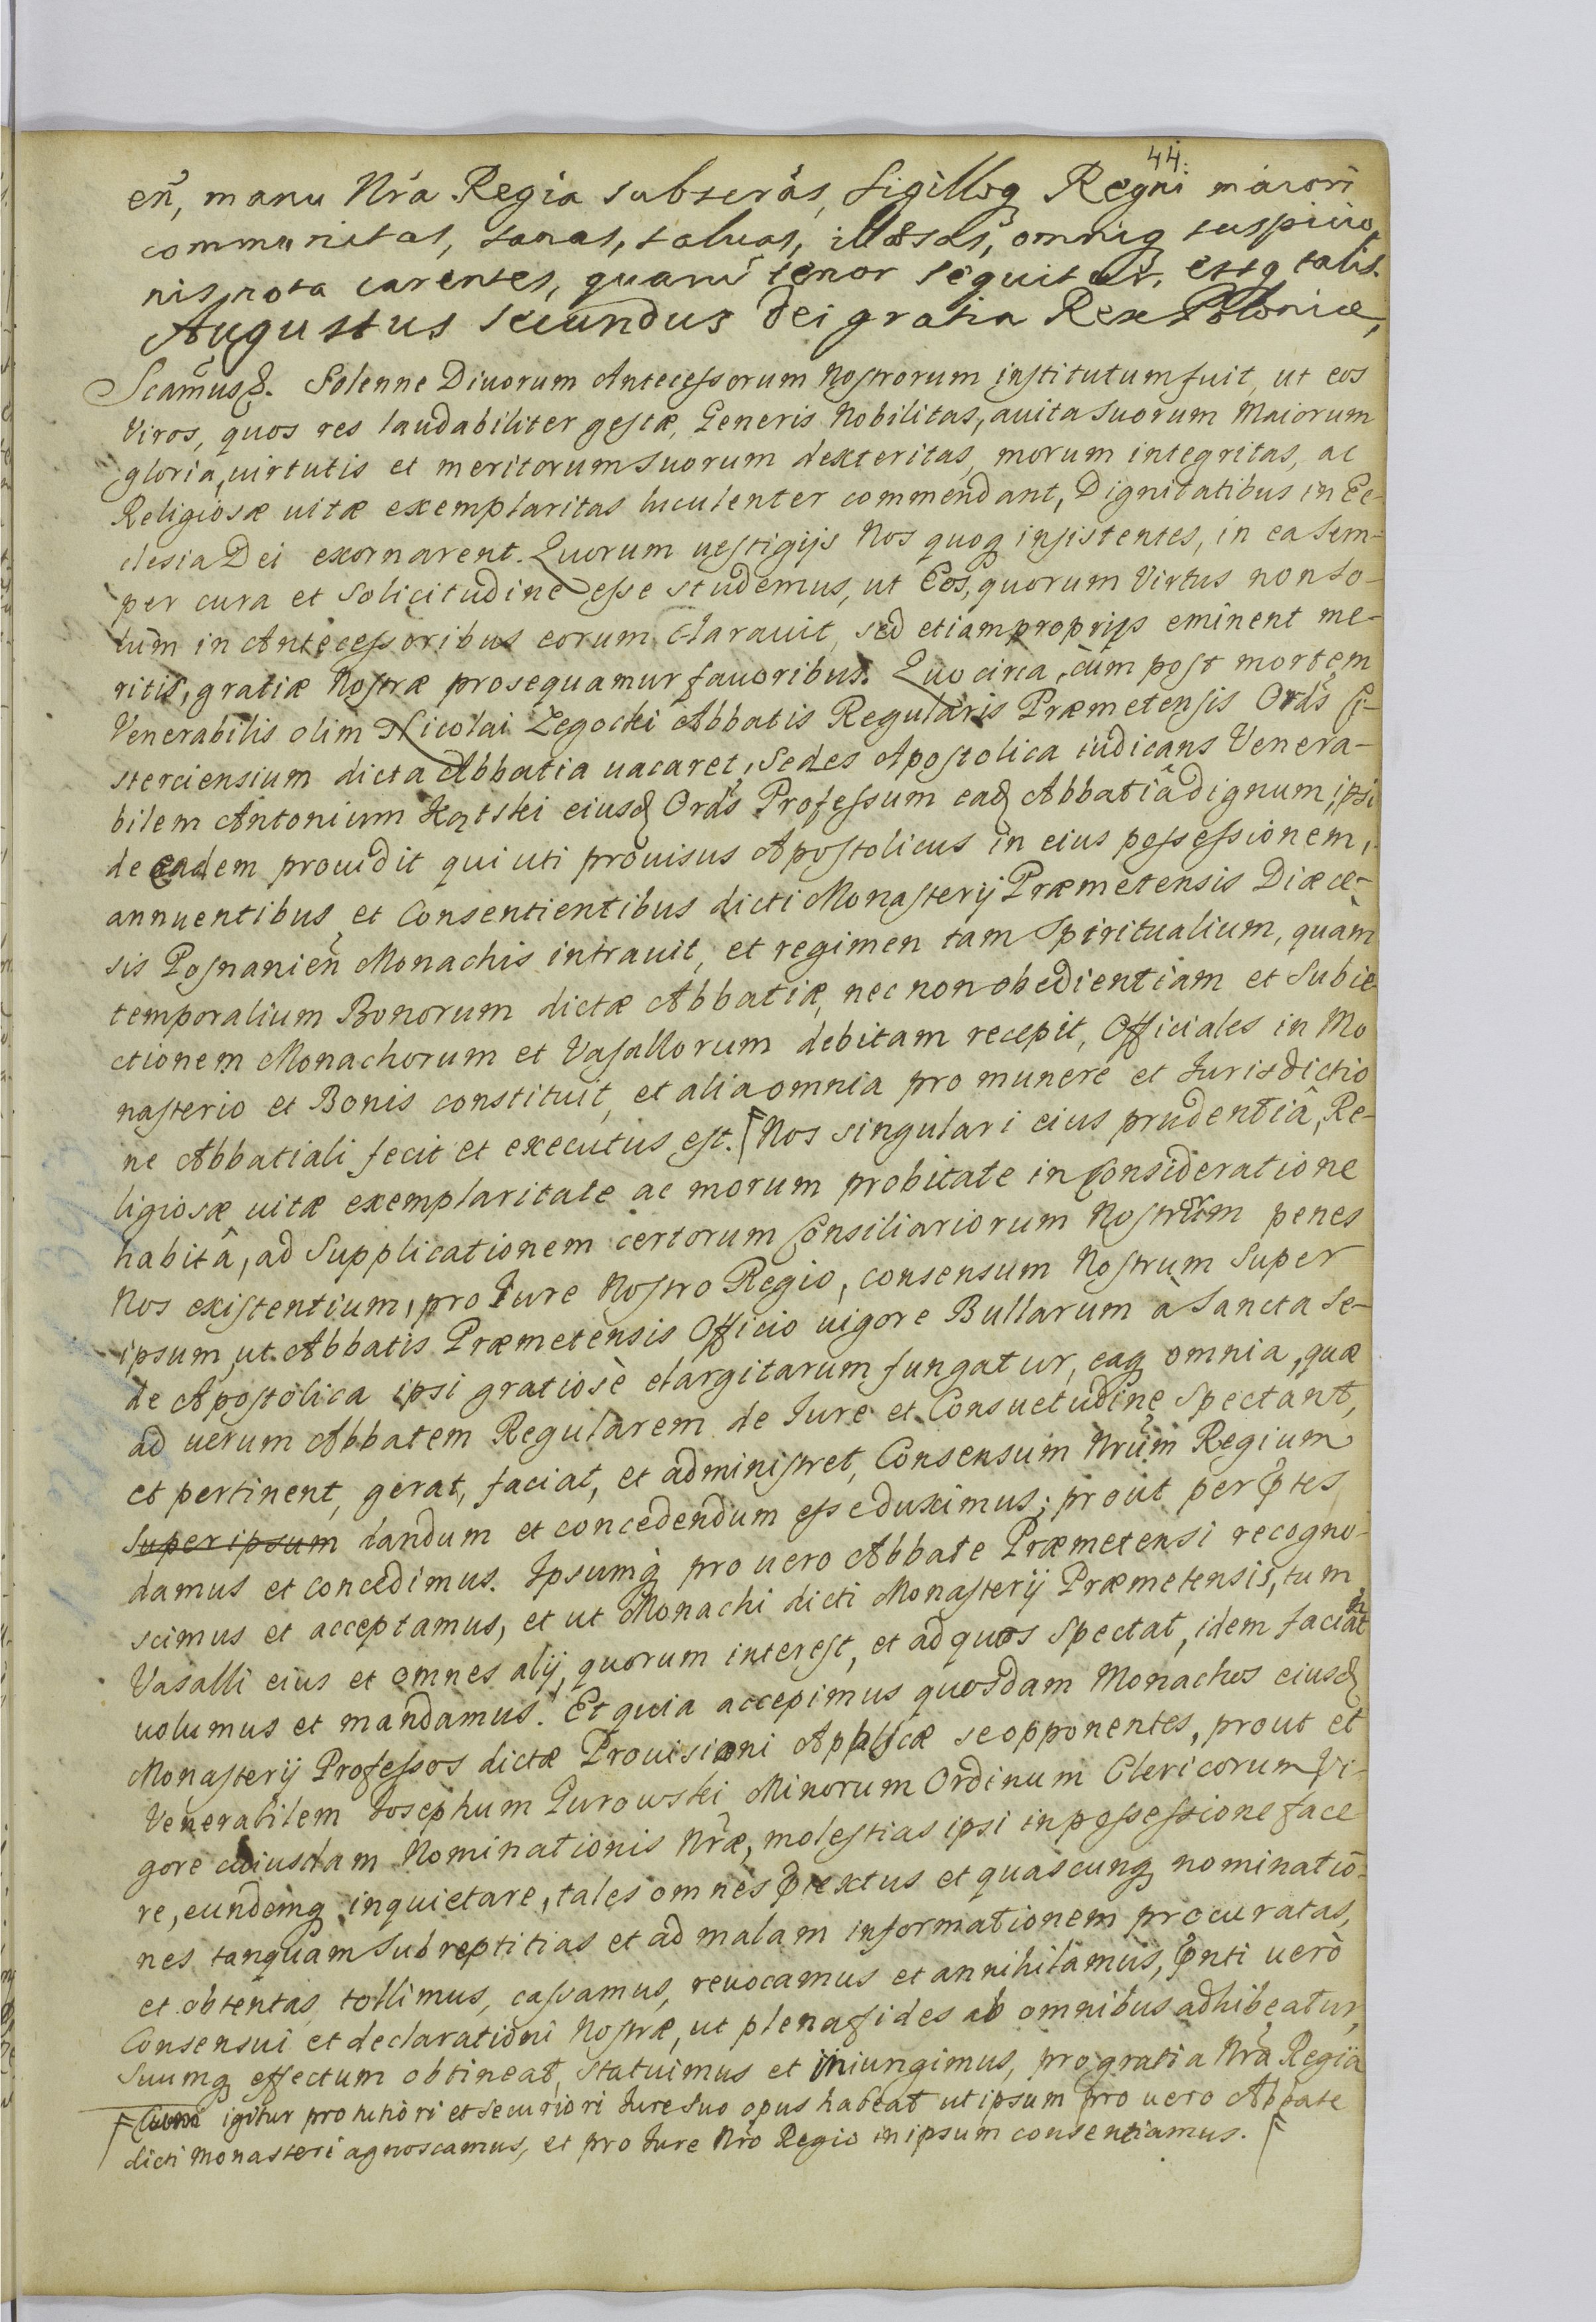 44.
eñ, manu Nrã Regia subscrãs, Sigilloq Regni maiori
communitas, sanas, saluas, illæsas, omniq suspicio
nis nota carentes, quarũ tenor sequitur, estq talis.
Augustus secundus Dei gratia Rex Poloniæ,
Scãmus &. Solenne Diuorum Antecessorum Nostrorum institutum fuit, ut eos
Viros, quos res laudabiliter gestæ, Generis Nobilitas, auita suorum Maiorum
gloria, uirtutis et meritorum suorum dexteritas, morum integritas, ac
Religiosæ uitæ exemplaritas luculenter commendant, Dignitatibus in Ec-
clesia Dei exornarent. Quorum uestigijs Nos quoq insistentes, in ea sem-
per cura et solicitudine esse studemus, ut Eos, quorum Virtus non so-
lùm in Antecessoribus eorum claruit, sed etiam proprijs eminent me-
ritis, gratiæ Nostræ prosequamur fauoribus. Quocirca, cùm post mortem
Venerabilis olim Nicolai Zegocki Abbatis Regularis Præmetensis Ordĩs Ci-
sterciensium dicta Abbatia uacaret, Sedes Apostolica iudicans Venera-
bilem Antonium Kątski eiusd Ordĩs Professum ead Abbatiâ dignum, ipsi
de eadem prouidit qui uti prouisus Apostolicus in eius possessionem,
annuentibus et Consentientibus dicti Monasterij Præmetensis Diæce-
sis Posnanieñ Monachis intrauit, et regimen tam Spiritualium, quàm
temporalium Bonorum dictæ Abbatiæ, nec non obedientiam et Subie
ctionem Monachorum et Vasallorum debitam recepit, Officiales in Mo
nasterio et Bonis constituit, et alia omnia pro munere et Jurisdictio
ne Abbatiali fecit et executus est. Nos singulari eius prudentiâ, Re-
ligiosæ uitæ exemplaritate ac morum probitate in Consideratione
habitâ, ad Supplicationem certorum Consiliariorum Nostrorum penes
Nos existentium, pro Jure Nostro Regio, consensum Nostrum Super
ipsum, ut Abbatis Præmetensis Officio uigore Bullarum à Sancta Se-
de Apostolica ipsi gratiosè elargitarum fungatur, eaq omnia, quæ
ad uerum Abbatem Regularem de Jure et Consuetudine Spectant,
et pertinent, gerat, faciat, et administret, Consensum Nrũm Regium
Super ipsum dandum et concedendum esse duximus; prout per p̃ntes
damus et concedimus. Ipsumq pro uero Abbate Præmetensi recogno-
scimus et acceptamus, et ut Monachi dicti Monasterij Præmetensis, tum
Vasalli eius et omnes alij, quorum interest, et ad quos Spectat, idem faciant
uolumus et mandamus. Et quia accepimus quosdam Monachos eiusd
Monasterij Professos dictæ Prouisioni Applicæ se opponentes, prout et
Venerabilem Josephum Gurowski Minorum Ordinum Clericorum Vi-
gore cuiusdam Nominationis Nræ, molestias ipsi in possessione face
re, eundemq inquietare, tales omnes p̃textus et quascunq nominatio-
nes tanquam Subreptitias et ad malam informationem procuratas,
et obtentas, tollimus, cassamus, reuocamus et annihilamus, p̃nti uerò
Consensui et declarationi Nostræ, ut plena fides ab omnibus adhibeatur,
Suumq effectum obtineat, statuimus et iniungimus, pro gratia Nrã Regia
Cum igitur pro tutiori et securiori Jure suo opus habeat ut ipsum pro uero Abbate
dicti Monasteri agnoscamus, et pro Jure Nrõ Regio in ipsum consentiamus.